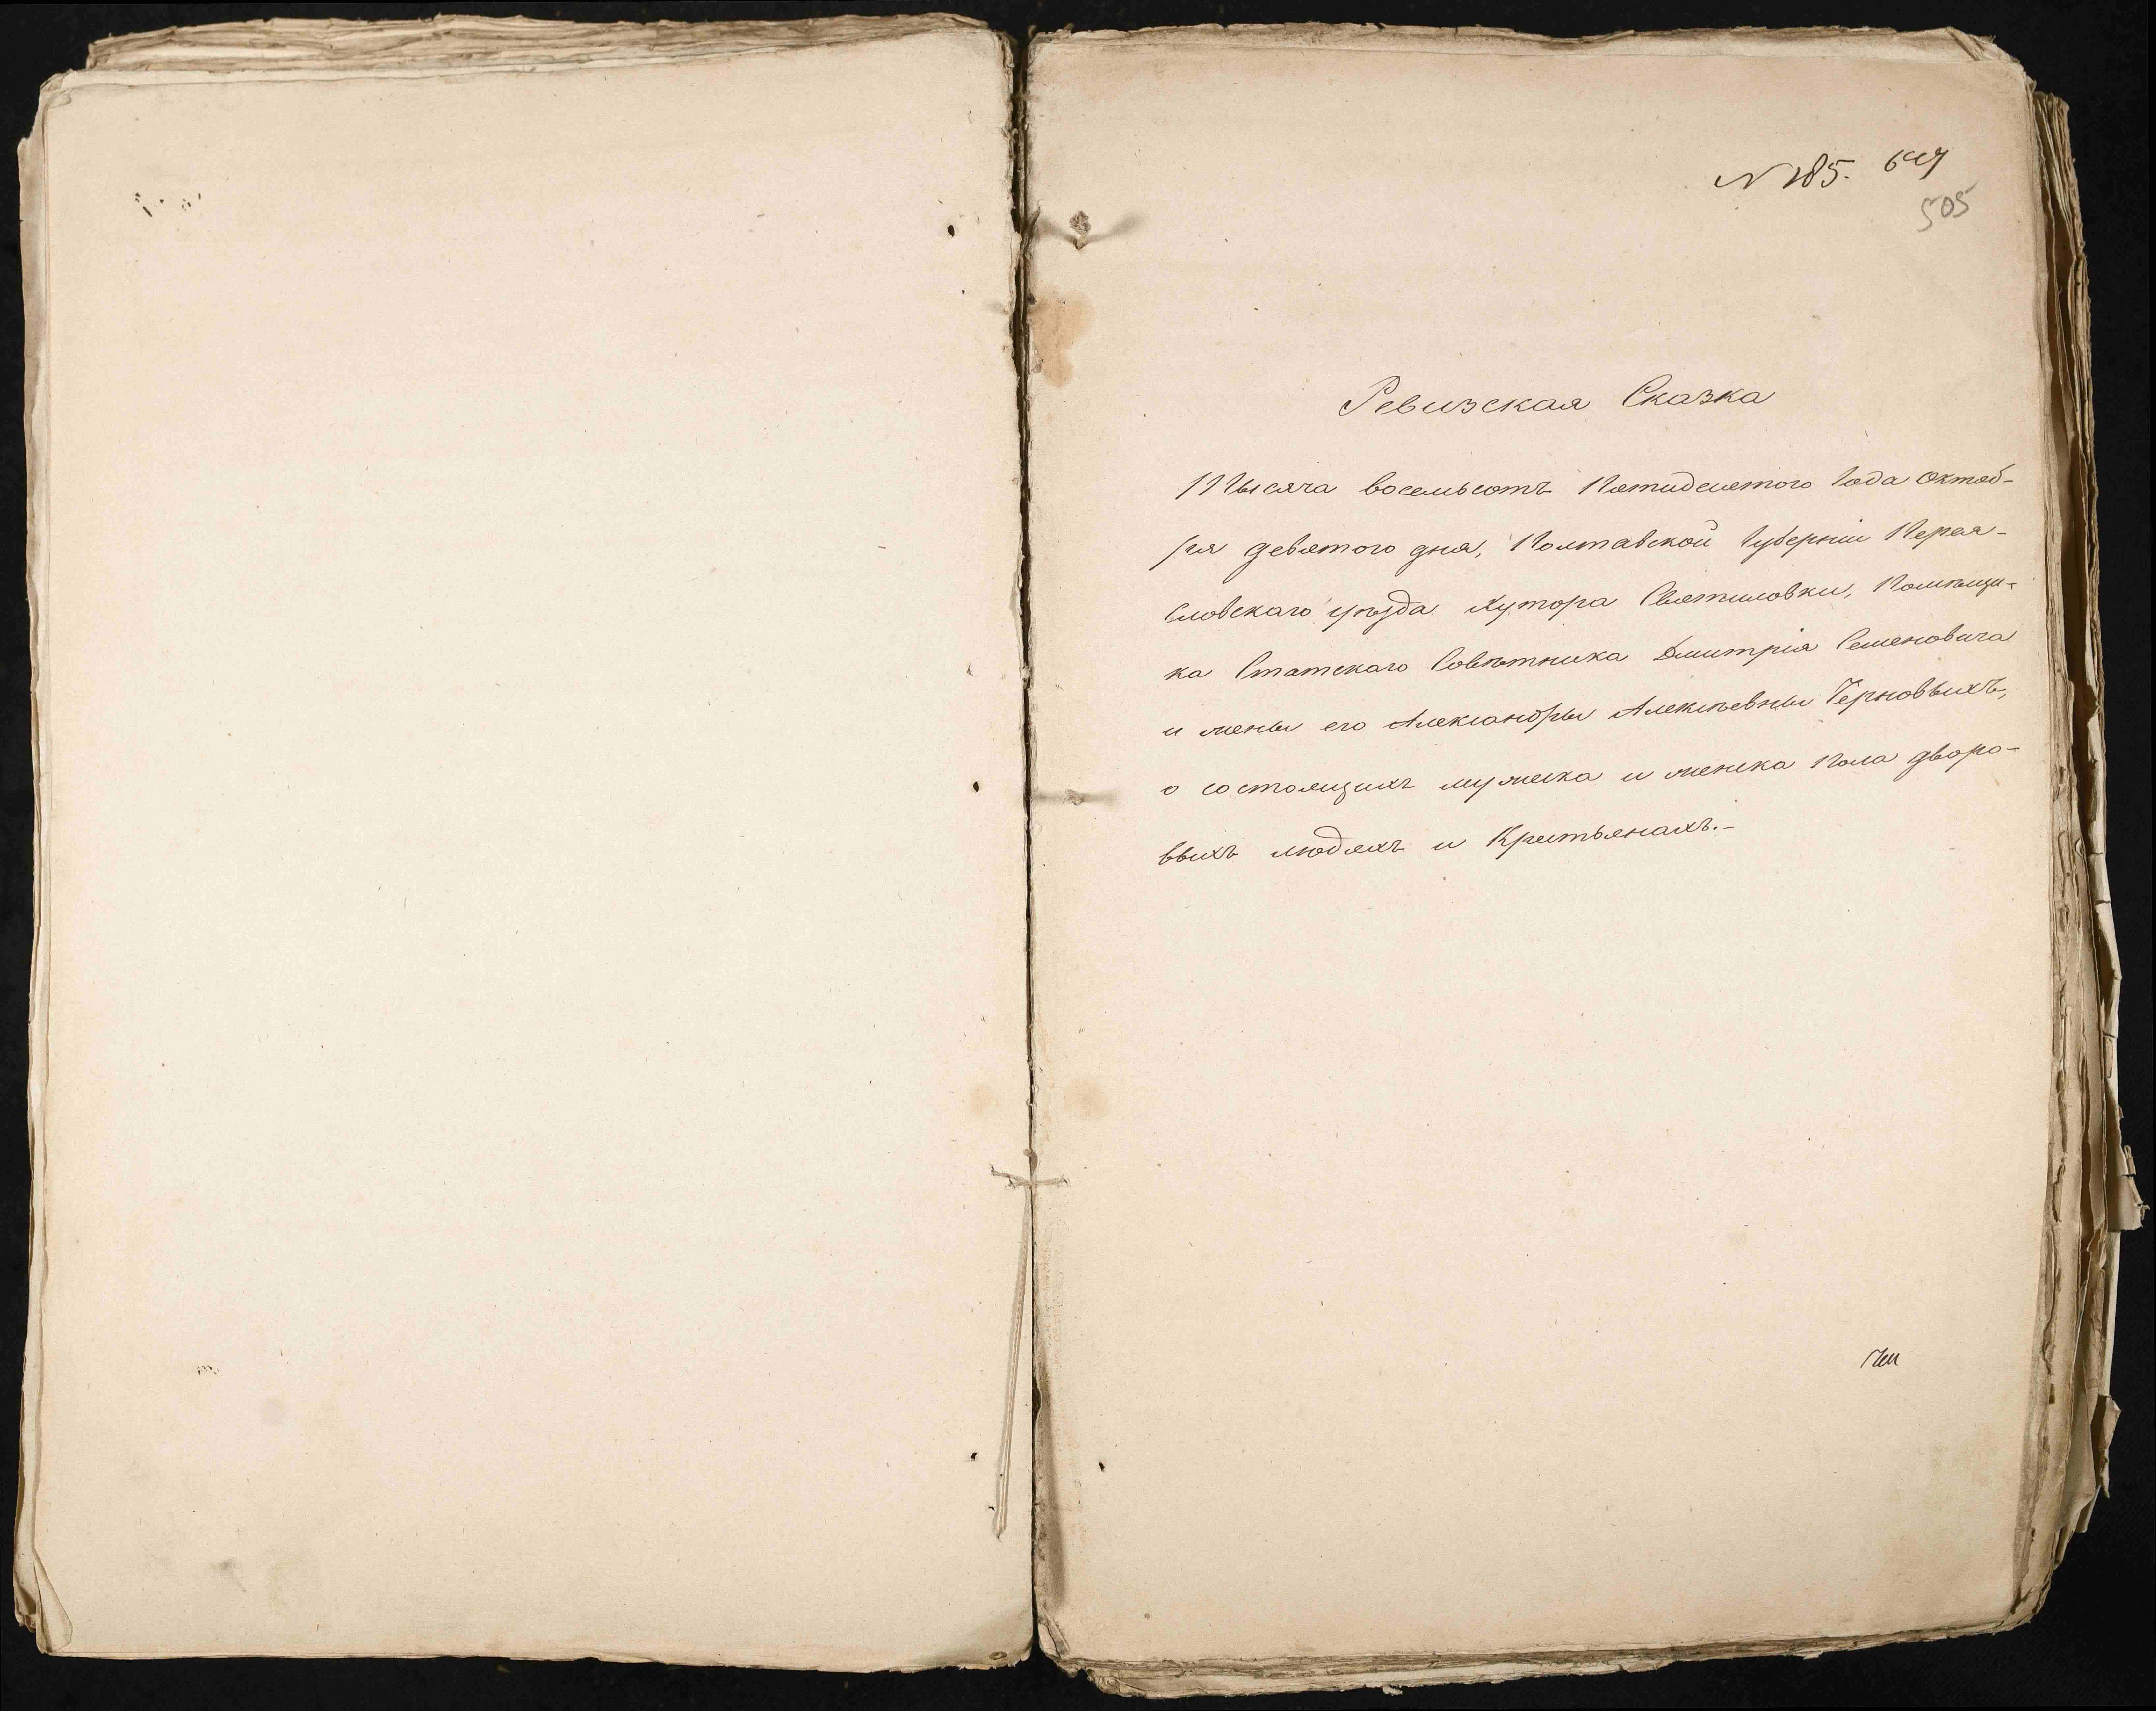 N 185.
505
Ревизская Сказка
Тысяча восемьсотъ Пятидесятого Года Октяб-
ря девятого дня, Полтавской Губерніи Перея-
словскаго уѣзда Хутора Святиловки, Помѣщи-
ка Статскаго Совѣтника Дмитрія Семеновича
и жены его Александры Алексѣевны Черновыхъ,
о состоящихъ мужеска и женска Пола дворо-
выхъ людяхъ и Крестьянахъ.-